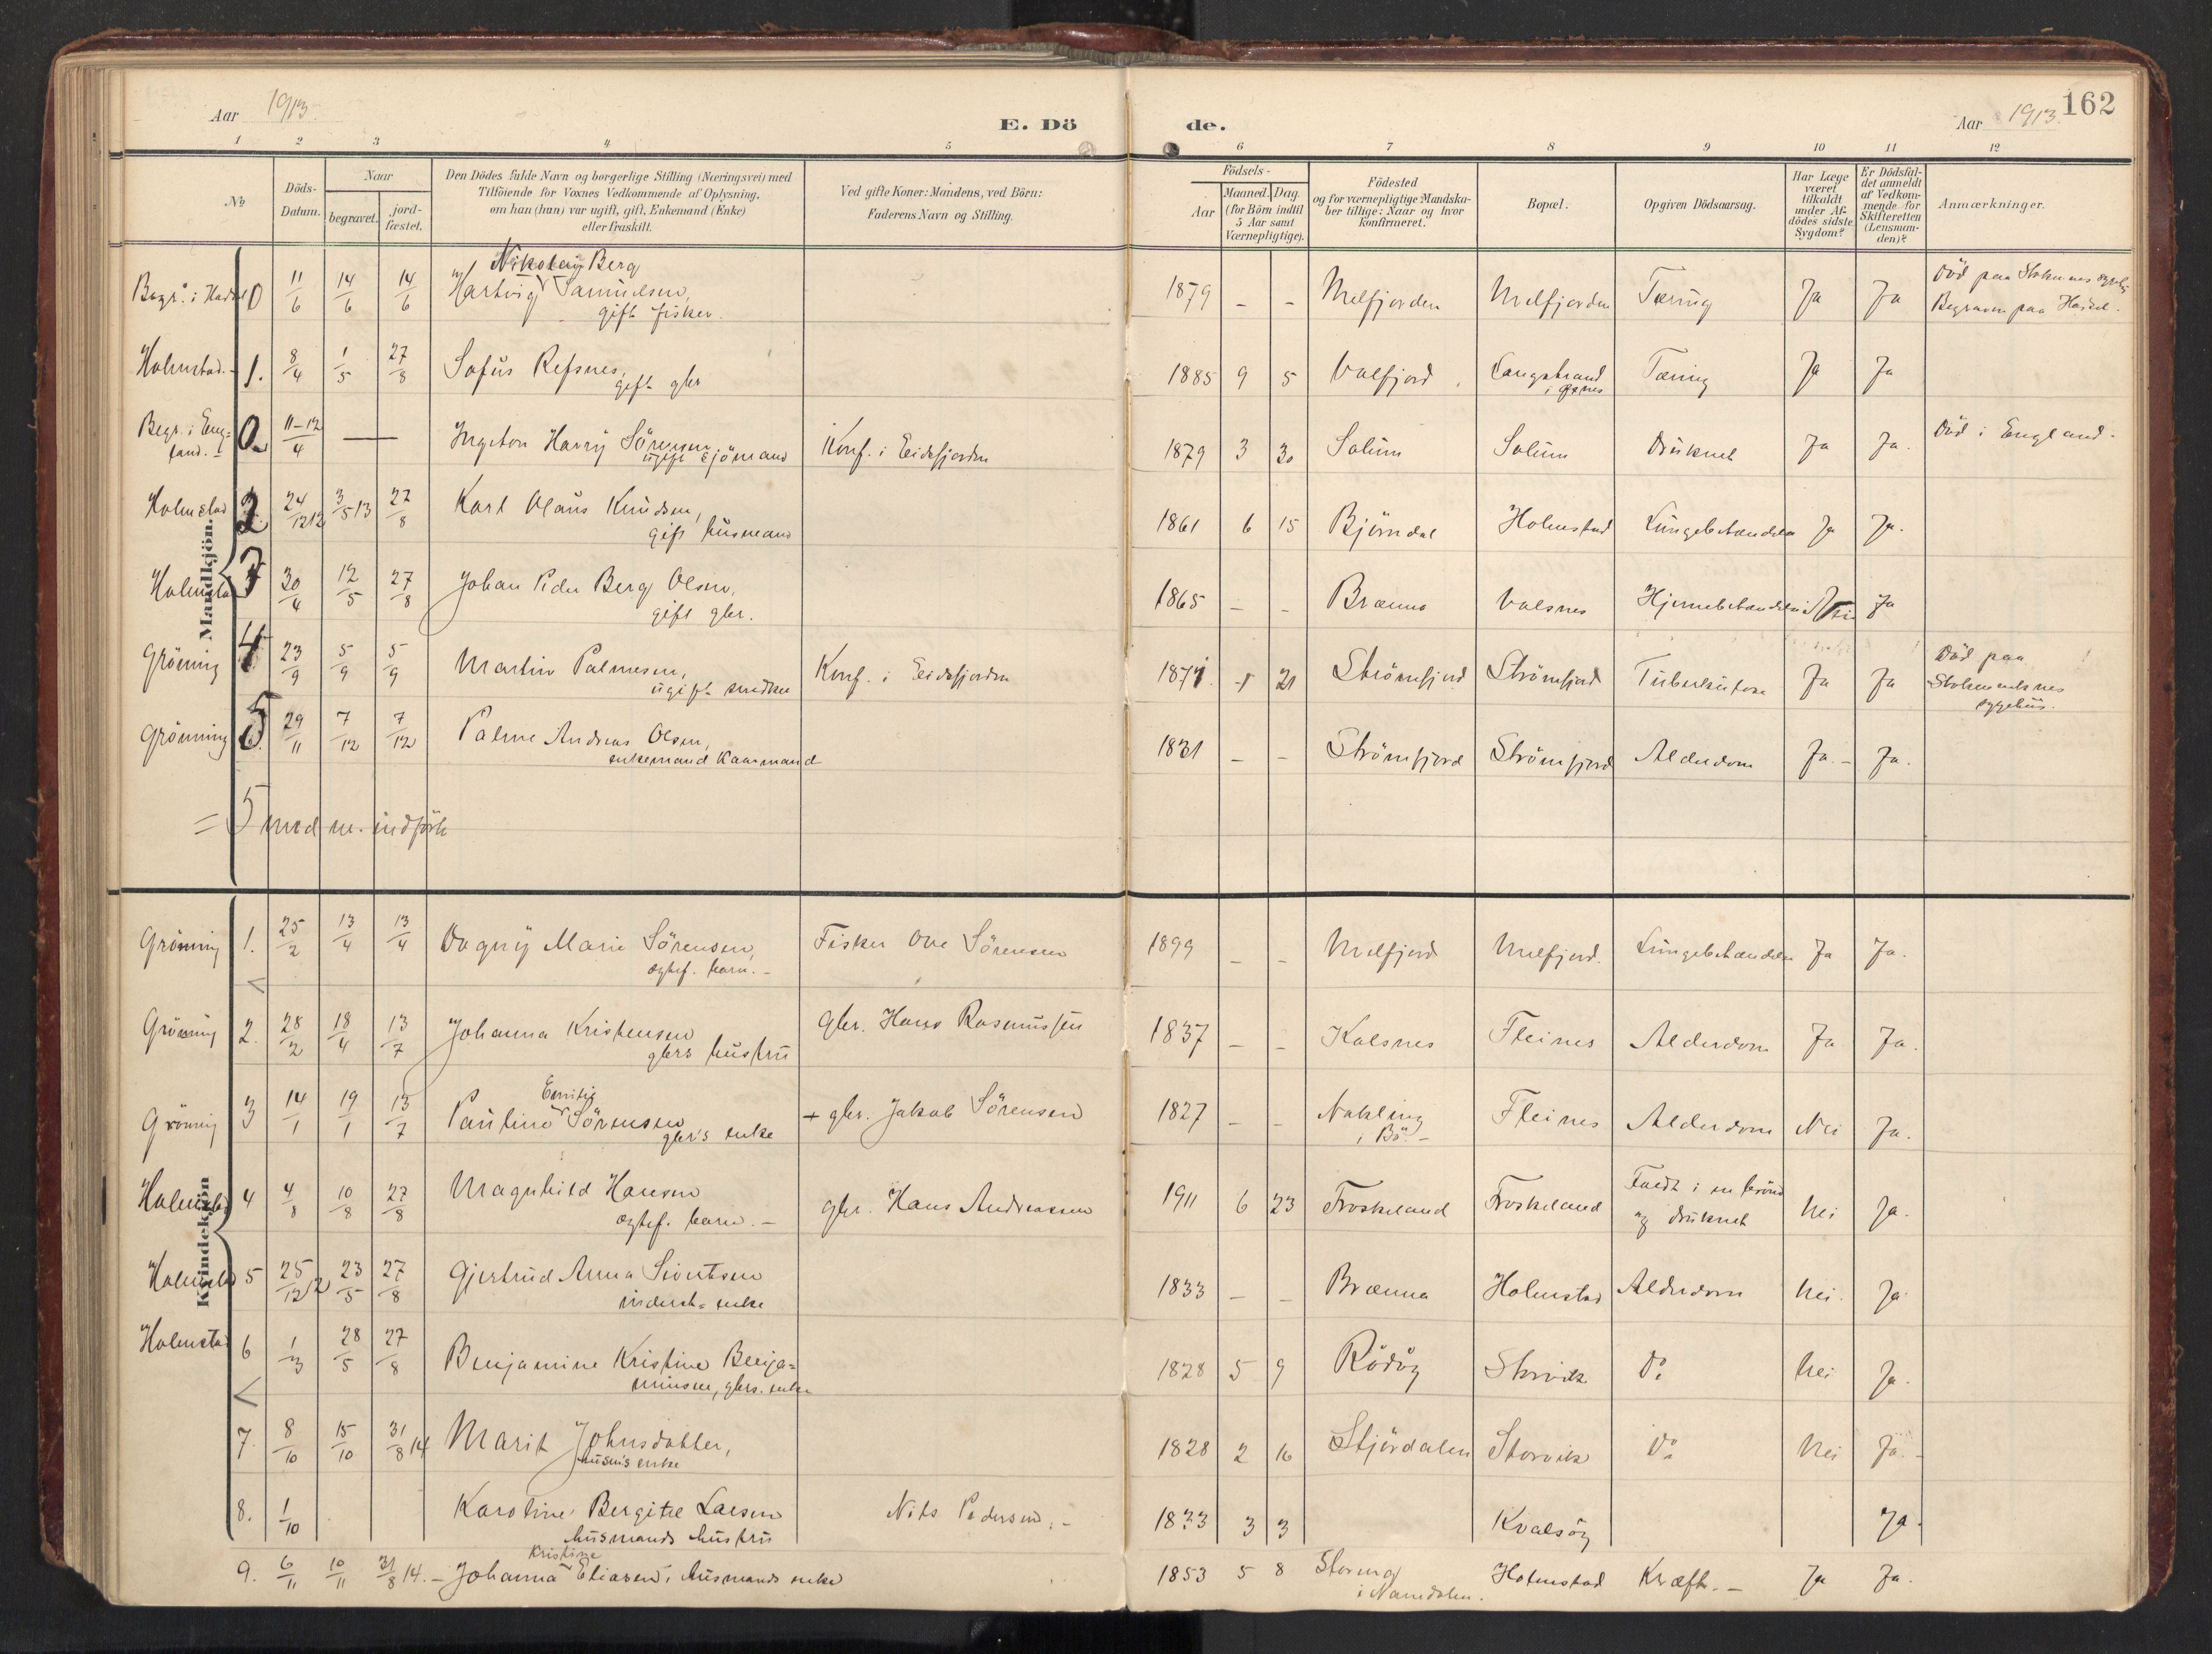 Aar 1913.
E. Dö de.
Aar 1913. 162
1 2 3 4 5 6 7 8 9 10 11 12
No
Döds-Datum.
Naar
begravet. jord-fæstet.
Den Dödes fulde Navn og borgerlige Stilling (Næringsvei) med
Tilföiende for Voxnes Vedkommende af Oplysning,
om han (hun) var ugift, gift, Enkemand (Enke)
eller fraskilt.
Ved gifte Koner: Mandens, ved Börn:
Faderens Navn og Stilling.
Födsels-
Aar Maaned. Dag.
(for Börn indtil
5 Aar samt
Værnepligtige).
Födested
og for værnepligtige Mandska-
ber tillige: Naar og hvor
Konfirmeret.
Bopæl.
Opgiven Dödsaarsag.
Har Læge
været
tilkaldt
under Af-
dödes sidste
Sygdom?
Er Dödsfal-
det anmeldt
af Vedkom-
mende for
Skifteretten
(Lensman-
den)?
Anmærkninger.
Mandkjön.
Begr. i Hadsel 0 11/6 14/6 14/6 Hartvig Nikolay Berg Samuelsen, 1879 - - Melfjorden Melfjorden Tæring Ja Ja Död paa Stokmarknes sygeh.
gift fisker. Begraven paa Hadsel.
Holmstad. 1. 8/4 1/5 27/8 Sofus Refsnes, 1885 9 5 Valfjord Langstrand Tæring Ja Ja
gift gbr
Begr. i Eng- 0 11-12/4 — Ingeton Harry Sörensen Konf. i Eidsfjorden 1879 3 30 Solum Solum Druknet Ja Ja. Död i England.
land. - ugift Sjömand
Holmstad 2 24/12 12 3/5 13 27/8 Karl Olaus Knudsen, 1861 6 15 Björndal Holmstad Lungebetændelse Ja Ja.
gift husmand
Holmstad 3 30/4 12/5 27/8 Johan Peder Berg Olsen, 1865 - - Brænna Valsnes Hjernebetændelse Nei Ja
gift gbr.
Gröning 4 23/9 5/9 5/9 Martin Palmesen, Konf. i Eidsfjorden 1871 1 21 Strömfjord Strömfjord Tuberkulose Ja Ja Död paa
ugift snedker Stokmarknes
sygehus.
Grönning 5 29/11 7/12 7/12 Palme Andreas Olsen, 1831 - - Strömfjord Strömfjord Alderdom Ja. - Ja.
enkemand Kaarmand
= 5 med nr. indförte
Kvindekjön
Gröning 1. 25/2 13/4 13/4 Dagny Marie Sörensen, Fisker Ove Sörensen 1899 - - Melfjord Melfjord. Lungebetændelse Ja Ja.
ægtef. barn. -
Gröning 2. 28/2 18/4 13/7 Johanna Kristensen gbr. Hans Rasmussen 1837 - - Kalsnes Fleines Alderdom Ja Ja.
gbrs hustru
Gröning 3 14/1 19/1 13/7 Pauline Emilie Sörensen + gbr. Jakob Sörensen 1827 - - Nykling Fleines Alderdom Nei Ja.
gbr's enke i Bö. -
Holmstad 4 4/8 10/8 27/8 Magnhild Hansen gbr. Hans Andreassen 1911 6 23 Froskeland Froskeland Faldt i en brönd Nei Ja.
ægtef. barn. - og druknet
Holmstad 5 25/12 12 23/5 27/8 Gjertrud Anna Sivertsen 1833 - - Brænna Holmstad Alderdom Nei. Ja.
inderst= enke
Holmstad 6 1/3 28/5 27/8 Benjamine Kristine Benja= 1828 5 9 Rödöy Storvik Do Nei Ja.
minsen, gbrs. enke
7. 8/10 15/10 31/8 14 Marit Johnsdatter, 1828 2 16 Stjördalen Storvik Do Nei Ja. -
husm's enke
8. 1/10 Karoline Bergitte Larsen Nils Pedersen. - 1833 3 3 Kvalsöy Ja.
husmands hustru
9. 6/11 10/11 31/8 14. - Johanna Kristine Eliasen, husmands enke 1853 5 8 Holmstad Kræft. - Ja Ja.
i Namdalen.